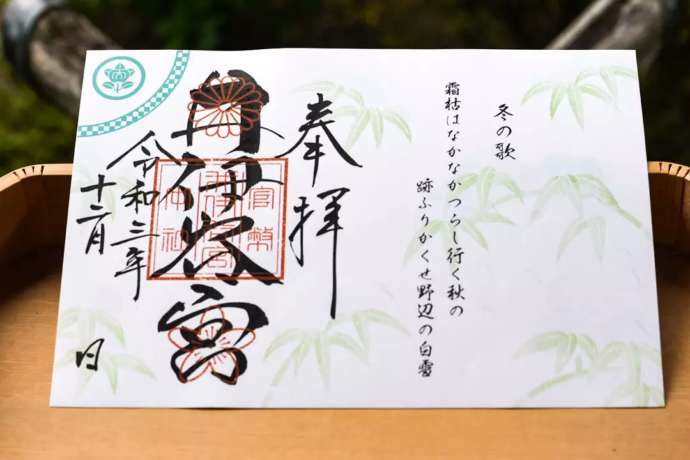 冬の歌
霜枯はなかなかつらし行く秋の
跡ふりかくせ野辺の白雪
奉拝
井伊谷宮
官幣
中社
令和三年
十二月 日